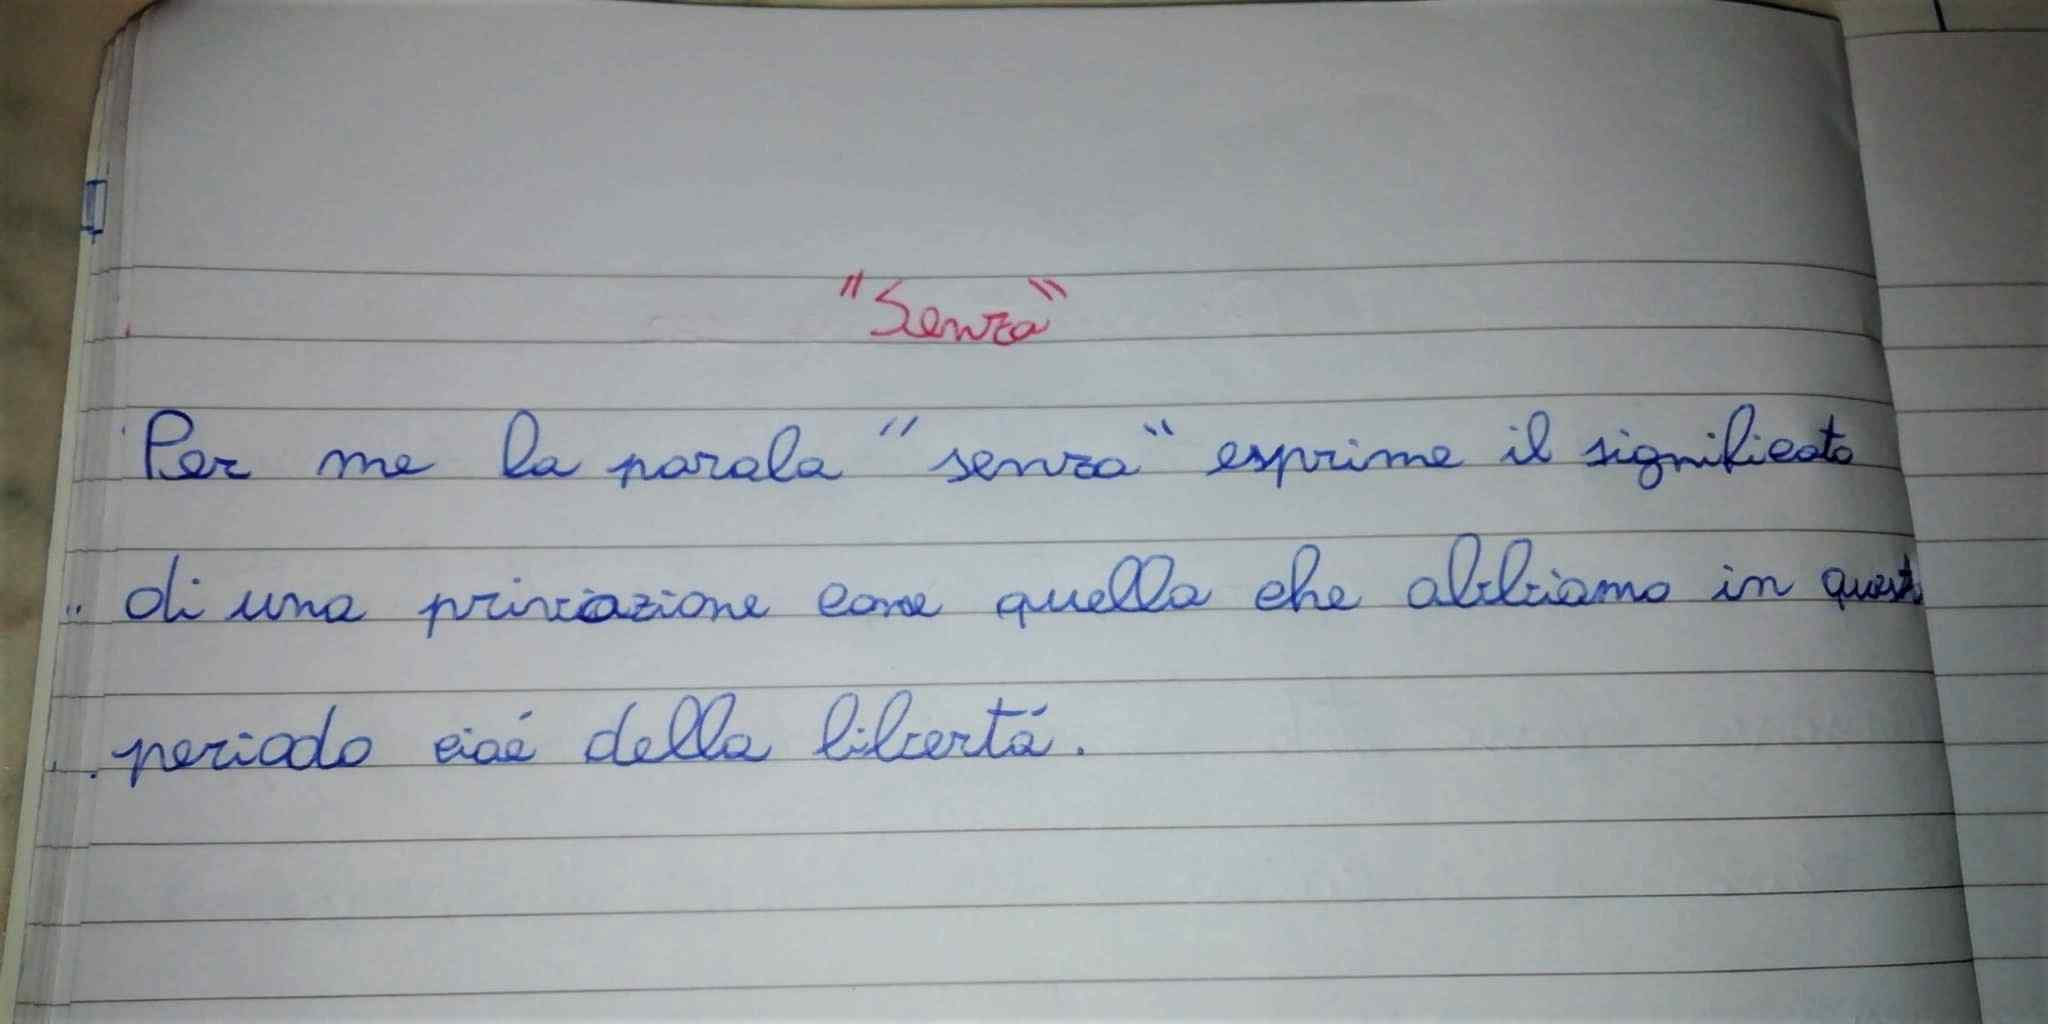 "Senza"
Per me la parola "senza" esprime il significato
di una privazione come quella che abbiamo in questo
periodo cioé della libertá.